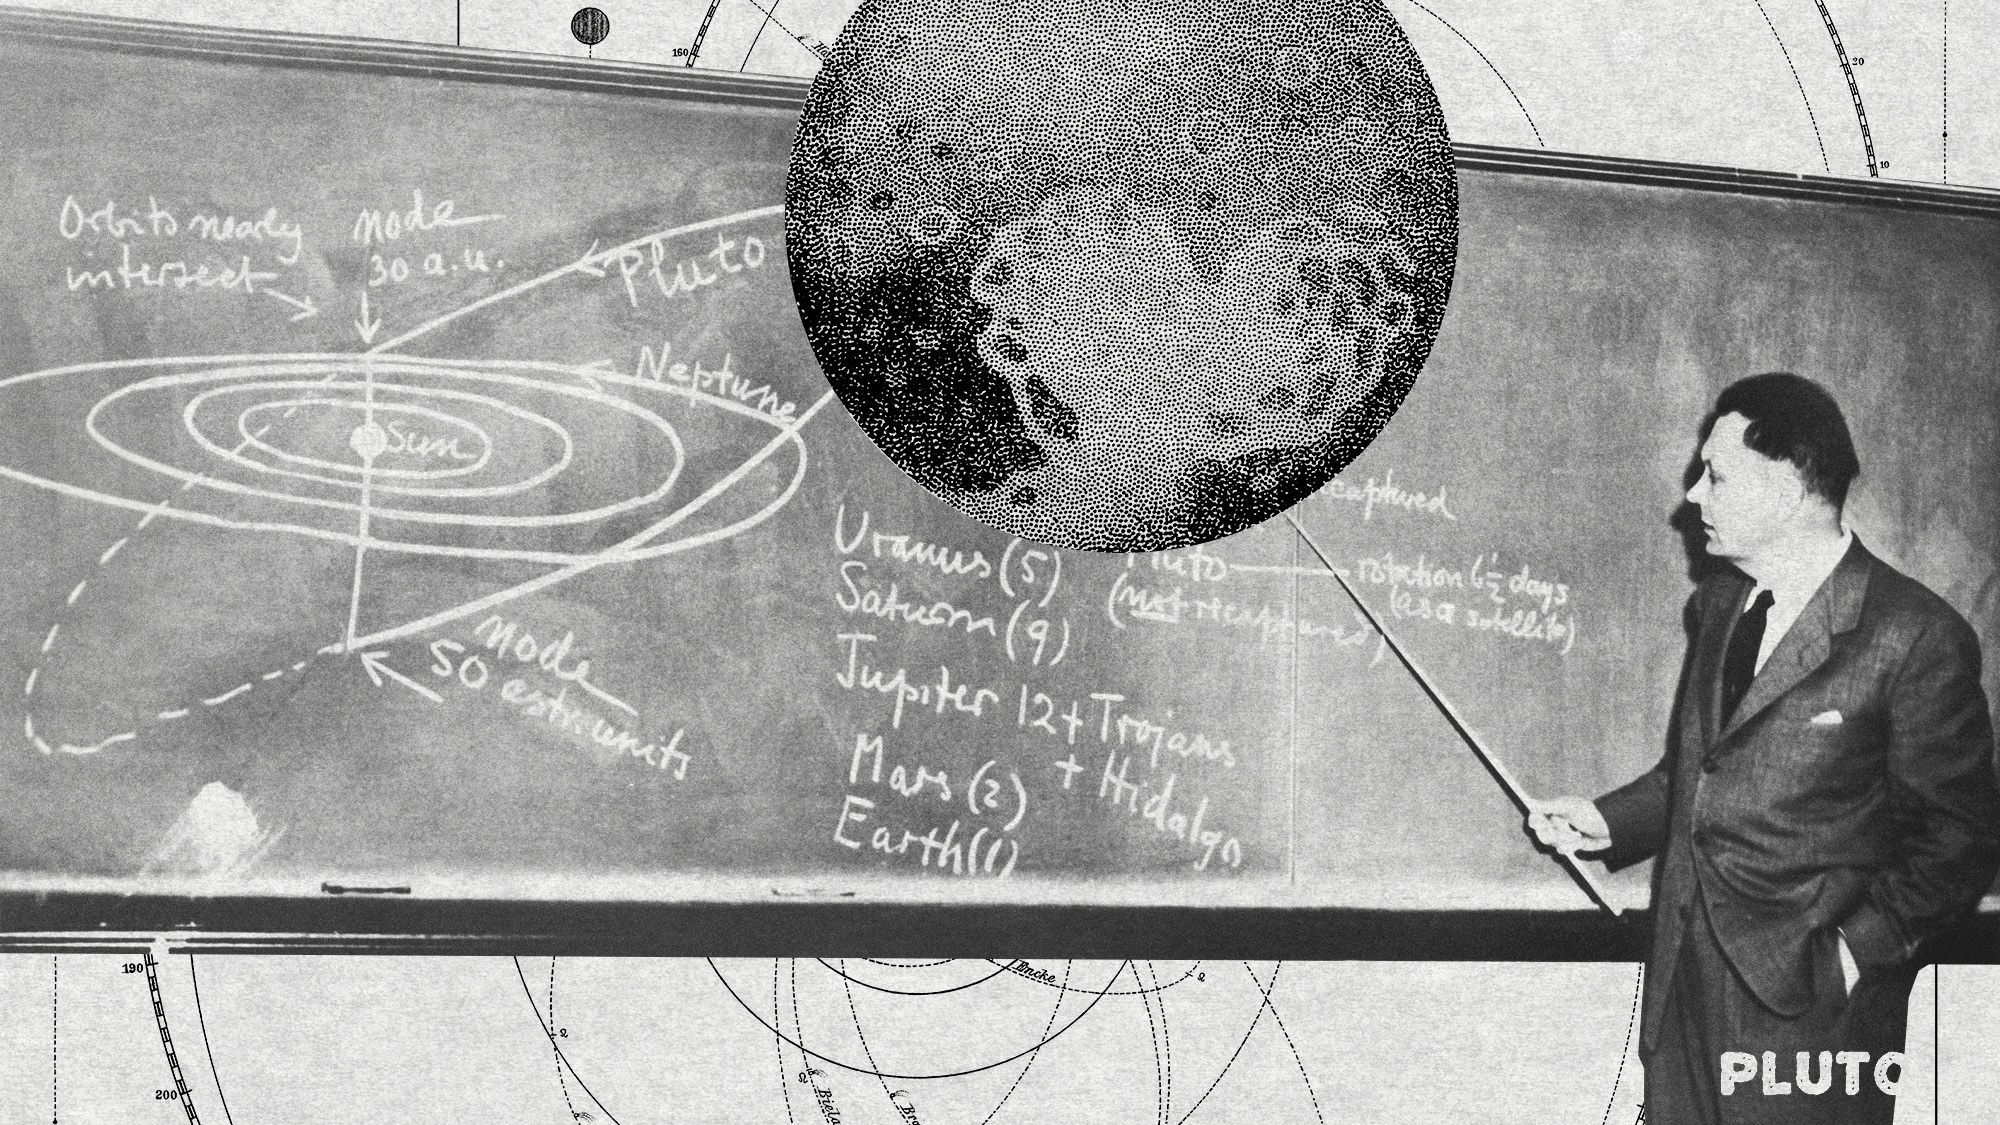 160
20
10
Orbits nearly
intersect
node
30 a.u.
Pluto
Neptune
Sun
captured
Uranus (5)
Pluto
rotation 6½ days
(as a satellite)
Saturn (9)
(not recaptured)
Jupiter 12 + Trojans
+ Hidalgo
Mars (2)
Earth (1)
node
50 astr. units
190
200
Encke
Biela
PLUTO